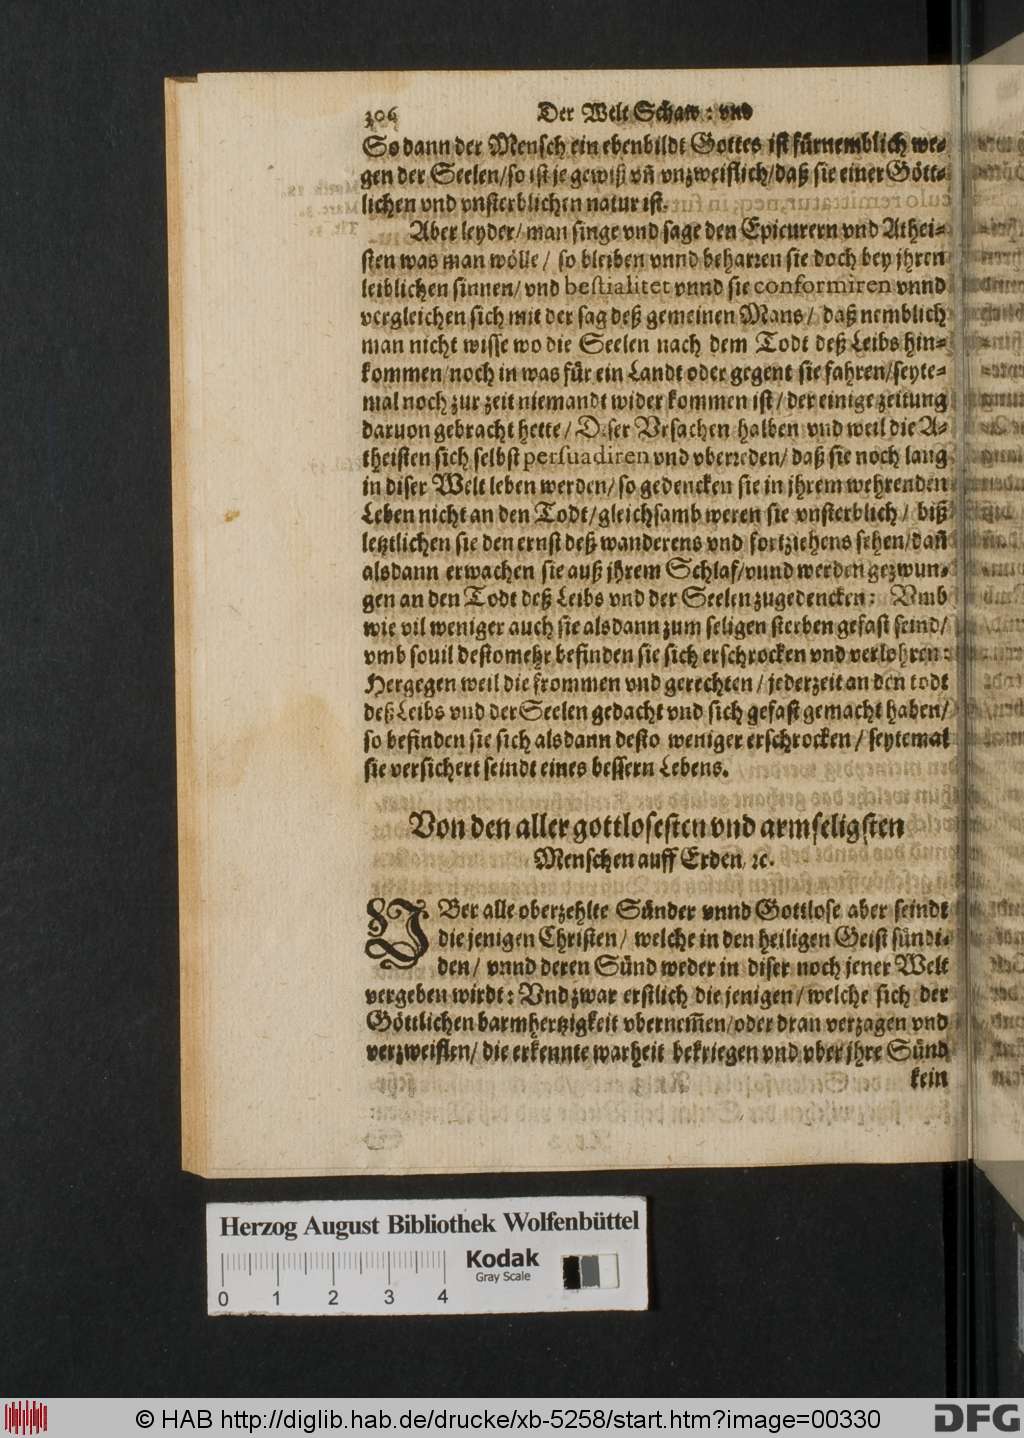 306 Der Welt Schaw: vnd
So dann der Mensch ein ebenbildt Gottes ist fürnemblich we-
gen der Seelen/so ist je gewiß vñ vnzweiflich/daß sie einer Gött-
lichen vnd vnsterblichen natur ist.
Aber leyder/ man singe vnd sage den Epicurern vnd Athei-
sten was man wölle/ so bleiben vnnd beharren sie doch bey jhren
leiblichen sinnen/ vnd bestialitet vnnd sie conformiren vnnd
vergleichen sich mit der sag deß gemeinen Mans/ daß nemblich
man nicht wisse wo die Seelen nach dem Todt deß Leibs hin-
kommen/noch in was für ein Landt oder gegent sie fahren/seyte-
mal noch zur zeit niemandt wider kommen ist/ der einige zeitung
daruon gebracht hette/ Diser Vrsachen halben vnd weil die A-
theisten sich selbst persuadiren vnd vberreden/ daß sie noch lang
in diser Welt leben werden/ so gedencken sie in jhrem wehrenden
Leben nicht an den Todt/gleichsamb weren sie vnsterblich/ biß
letztlichen sie den ernst deß wanderens vnd fortziehens sehen/dañ
alsdann erwachen sie auß jhrem Schlaf/vnnd werden gezwun-
gen an den Todt deß Leibs vnd der Seelen zugedencken: Vmb
wie vil weniger auch sie alsdann zum seligen sterben gefast seind/
vmb souil destomehr befinden sie sich erschrocken vnd verlohren:
Hergegen weil die frommen vnd gerechten/ jederzeit an den todt
deß Leibs vnd der Seelen gedacht vnd sich gefast gemacht haben/
so befinden sie sich alsdann desto weniger erschrocken/ seytemal
sie versichert seindt eines bessern Lebens.
Von den aller gottlosesten vnd armseligsten
Menschen auff Erden, ꝛc.
VBer alle oberzehlte Sünder vnnd Gottlose aber seindt
die jenigen Christen/ welche in den heiligen Geist sündi-
den/ vnnd deren Sünd weder in diser noch jener Welt
vergeben wirdt: Vnd zwar erstlich die jenigen/ welche sich der
Göttlichen barmhertzigkeit vbernem̃en/oder dran verzagen vnd
verzweiflen/ die erkennte warheit bekriegen vnd vber jhre Sünd
kein
Herzog August Bibliothek Wolfenbüttel
Kodak
Gray Scale
0 1 2 3 4
© HAB http://diglib.hab.de/drucke/xb-5258/start.htm?image=00330
DFG